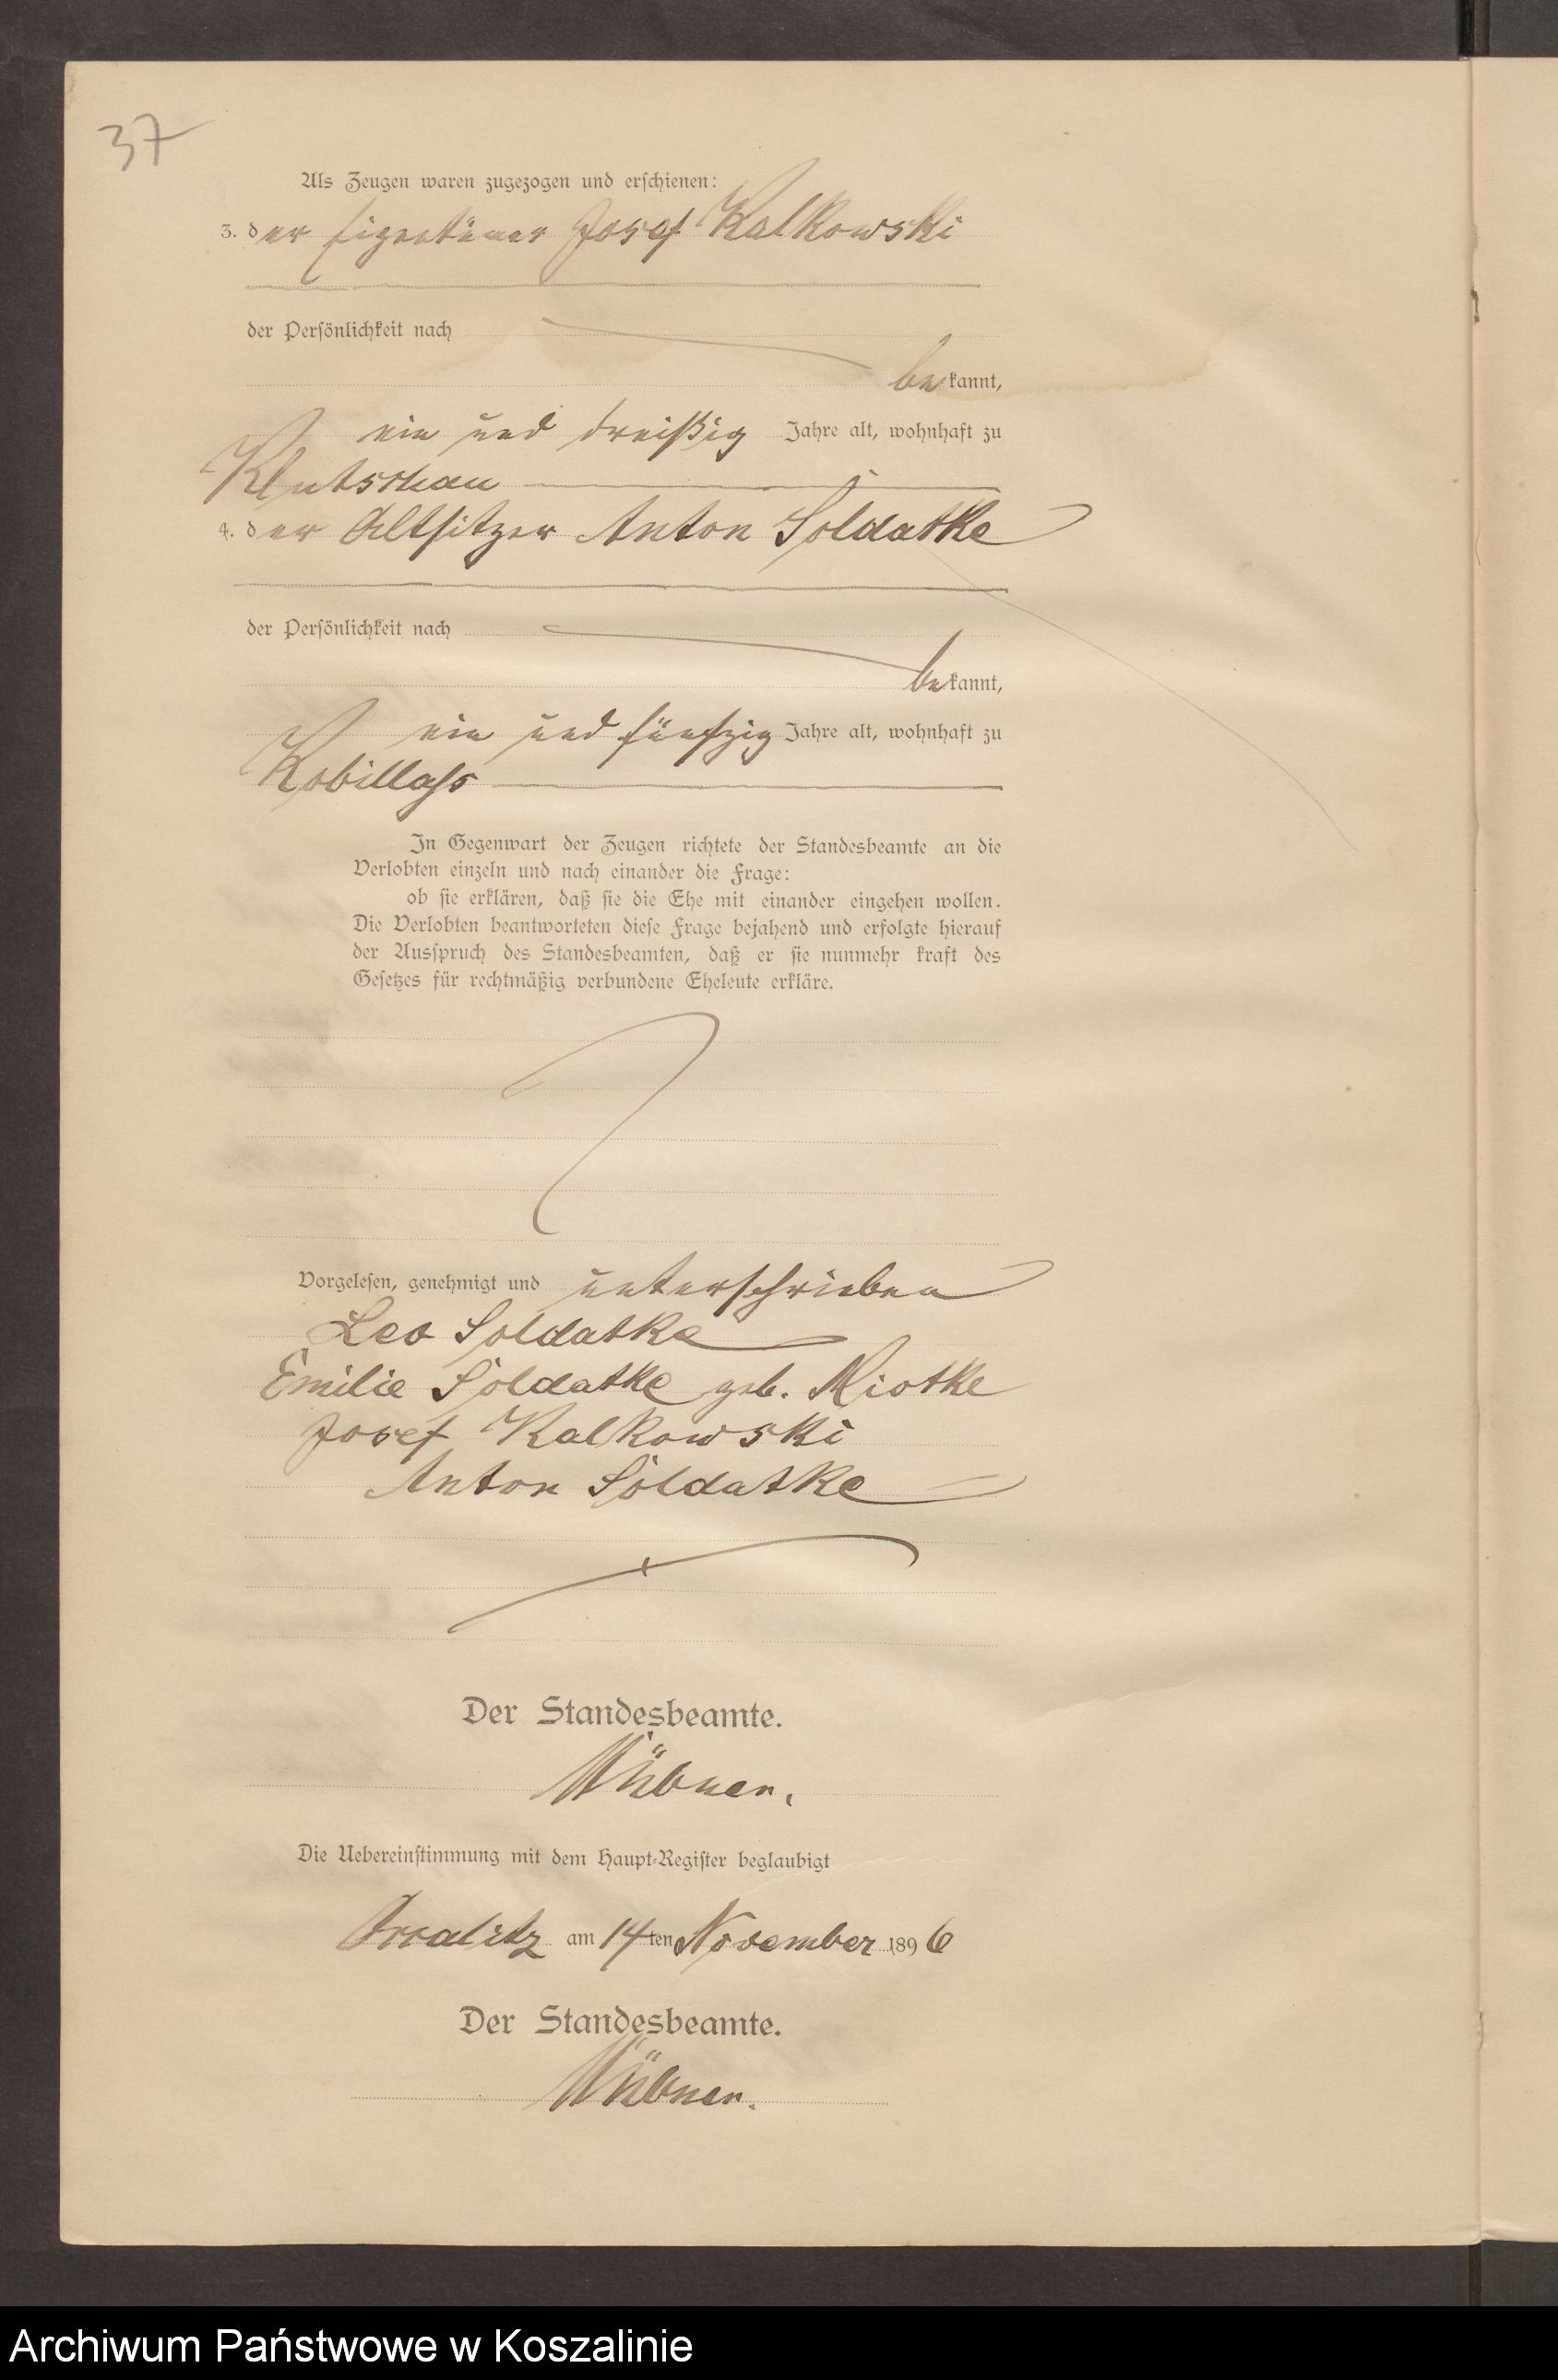 37
Als Zeugen waren zugezogen und erschienen:
3. der Eigentümer Josef Kalkowski
der Persönlichkeit nach
bekannt,
ein und dreißig Jahre alt, wohnhaft zu
Klutschau
4. der Altsitzer Anton Soldatke
der Persönlichkeit nach
bekannt,
ein und fünfzig Jahre alt, wohnhaft zu
Kobillass
In Gegenwart der Zeugen richtete der Standesbeamte an die
Verlobten einzeln und nach einander die Frage:
ob sie erklären, daß sie die Ehe mit einander eingehen wollen.
Die Verlobten beantworteten diese Frage bejahend und erfolgte hierauf
der Ausspruch des Standesbeamten, daß er sie nunmehr kraft des
Gesetzes für rechtmäßig verbundene Eheleute erkläre.
Vorgelesen, genehmigt und unterschrieben
Leo Soldatke
Emilie Soldatke geb. Miotke
Josef Kalkowski
Anton Soldatke
Der Standesbeamte.
Hübner.
Die Uebereinstimmung mit dem Haupt-Register beglaubigt
am 14ten November 1896
Der Standesbeamte.
Hübner.
Archiwum Państwowe w Koszalinie